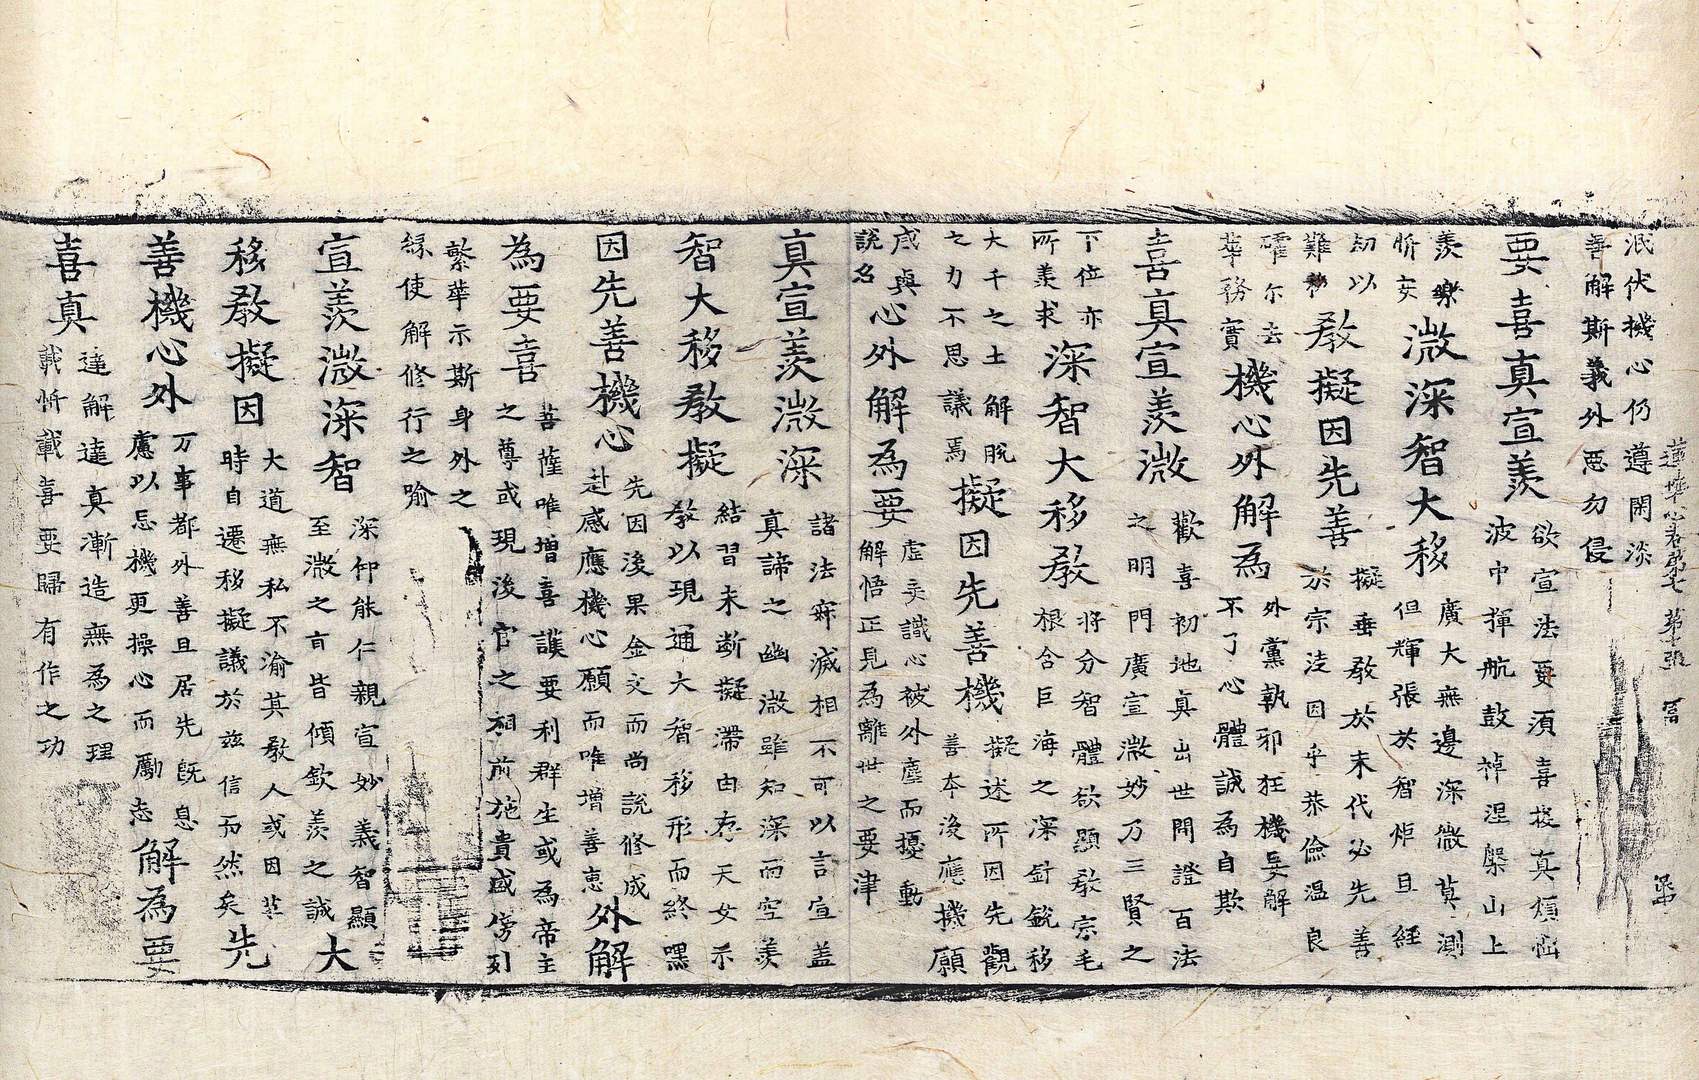 蓮華心卷第七 第十張 冨
泯伏機心仍遵閑淡
善解斯義外惡勿侵
要喜真宣羨
欲宣法要須喜捘真煩惱
波中揮航鼓棹涅槃山上
羨樂
忻妄
微深智大移
廣大無邊深微莫測
但輝張於智炬且經
劫以
難移
教擬因先善
擬垂教於末代必先善
於宗淺因乎恭儉温良
確尓去
華務實
機心外解為
外黨執邪狂機妄解
不了心體誠為自欺
喜真宣羨微
歡喜初地真出世間證百法
之明門廣宣微妙乃三賢之
下位亦
所羨求
深智大移教
將分智體欲顯教宗毛
根含巨海之深針銳移
大千之土解脫
之力不思議焉
擬因先善機
擬述所因先觀
善本後應機願
咸與
說名
心外解為要
虛妄識心被外塵而擾動
解悟正見為離世之要津
真宣羨微深
諸法寂滅相不可以言宣蓋
真諦之幽微雖知深而空羨
智大移教擬
結習未断擬滯由存天女示
教以現通大智移形而終嘿
因先善機心
先因後果金文而尚說修成
赴感應機心願而唯增善惠
外解
為要喜
菩薩唯增喜護要利群生或為帝主
之尊或現後官之相前施貴或傍列
繁華示斯身外之
緣使解修行之喻
宣羨微深智
深仰能仁親宣妙義智顯
至微之旨皆傾欽羨之誠
大
移教擬因
大道無私不渝其教人或因茲
時自遷移擬議於茲信而然矣
先
善機心外
万事都外善且居先旣息
慮以忘機更操心而勵志
解為要
喜真
達解達真漸造無為之理
載忻載喜要歸有作之功